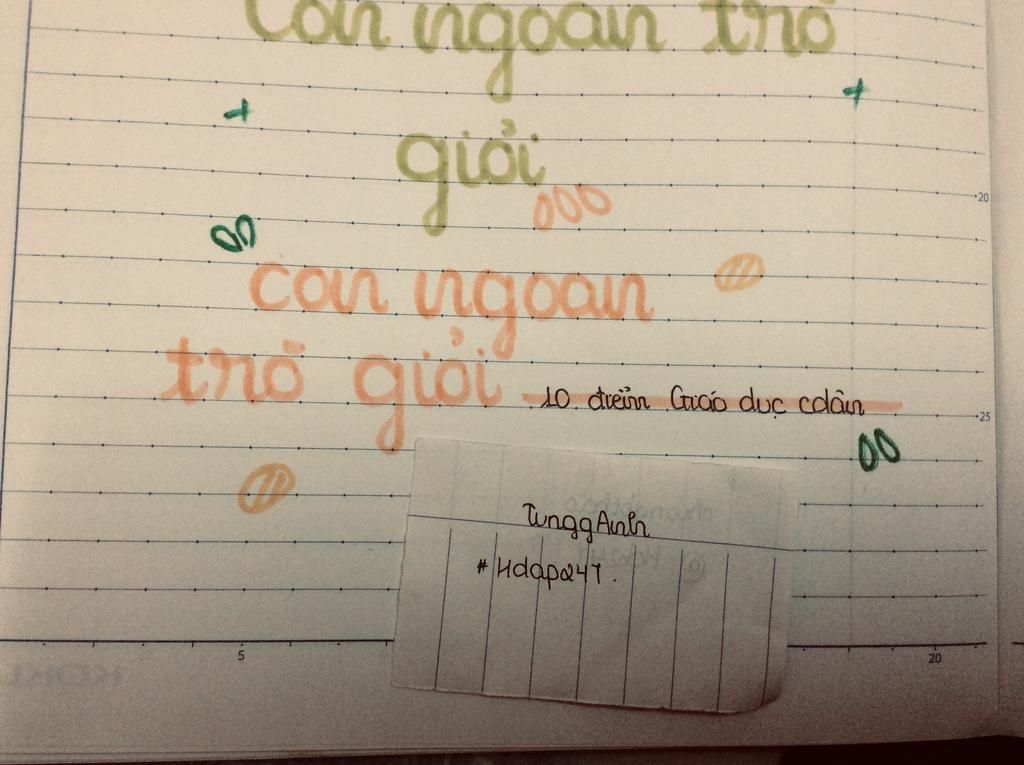 Con ngoan trò
giỏi
con ngoan
trò giỏi
10 điểm Giáo dục cdân
TunggAnh
#Hdap247.
20
25
5
20